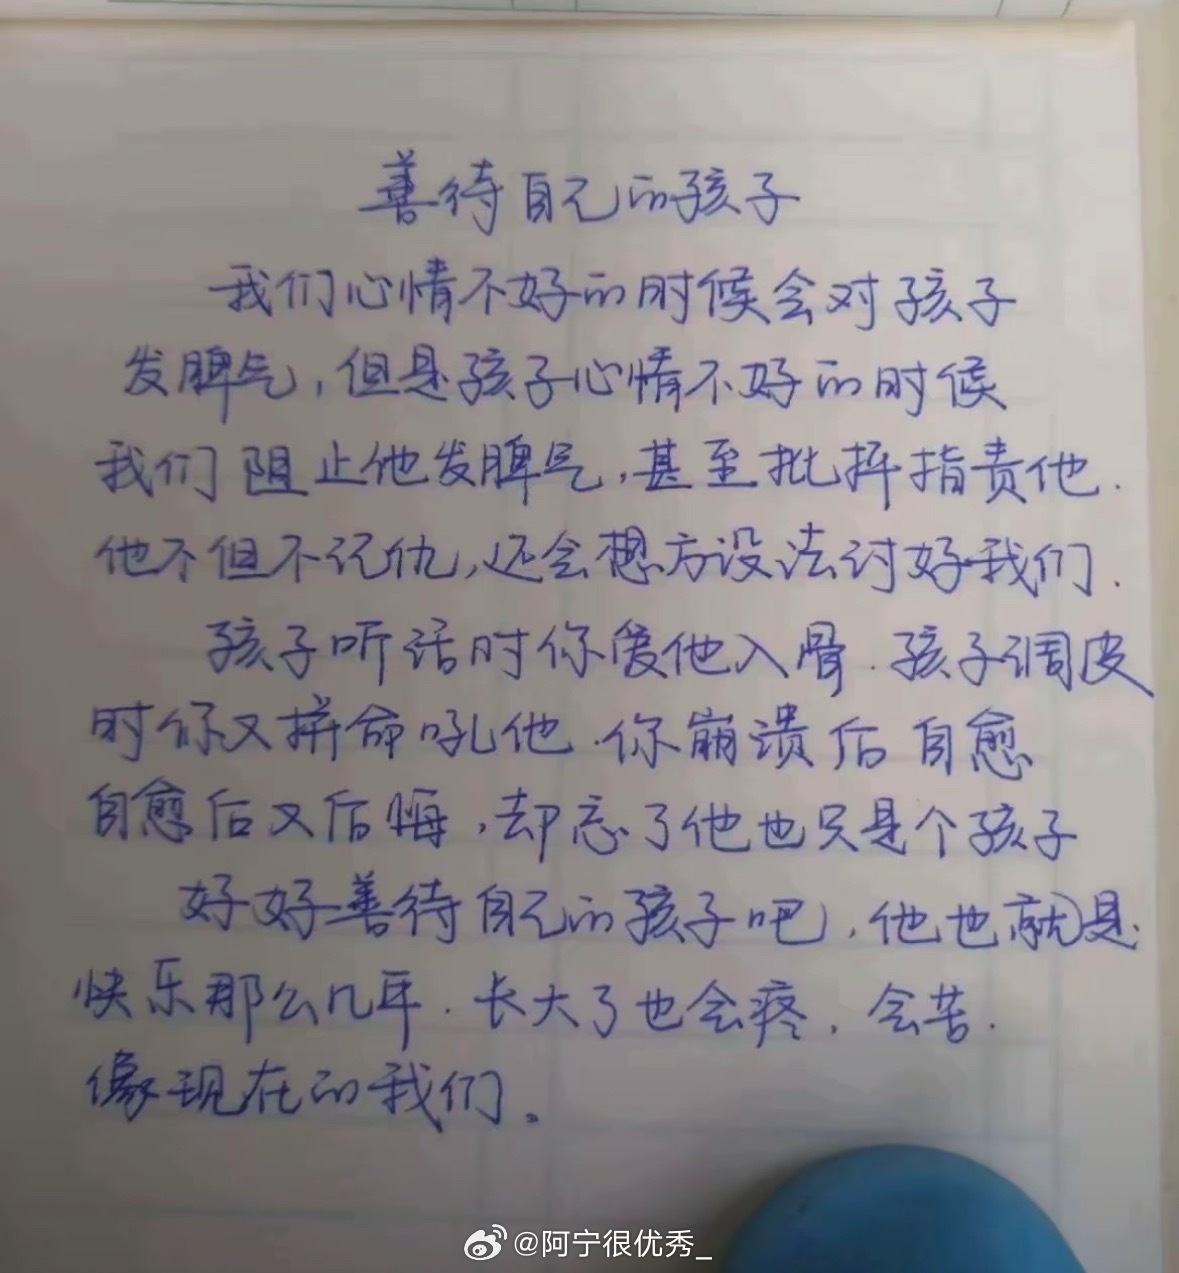 善待自己的孩子
我们心情不好的时候会对孩子
发脾气，但是孩子心情不好的时候
我们阻止他发脾气，甚至批抨指责他.
他不但不记仇，还会想方设法讨好我们.
孩子听话时你爱他入骨.孩子调皮
时你又拼命吼他.你崩溃后自愈
自愈后又后悔，却忘了他也只是个孩子
好好善待自己的孩子吧，他也就是
快乐那么几年.长大了也会疼，会苦.
像现在的我们。
@阿宁很优秀_